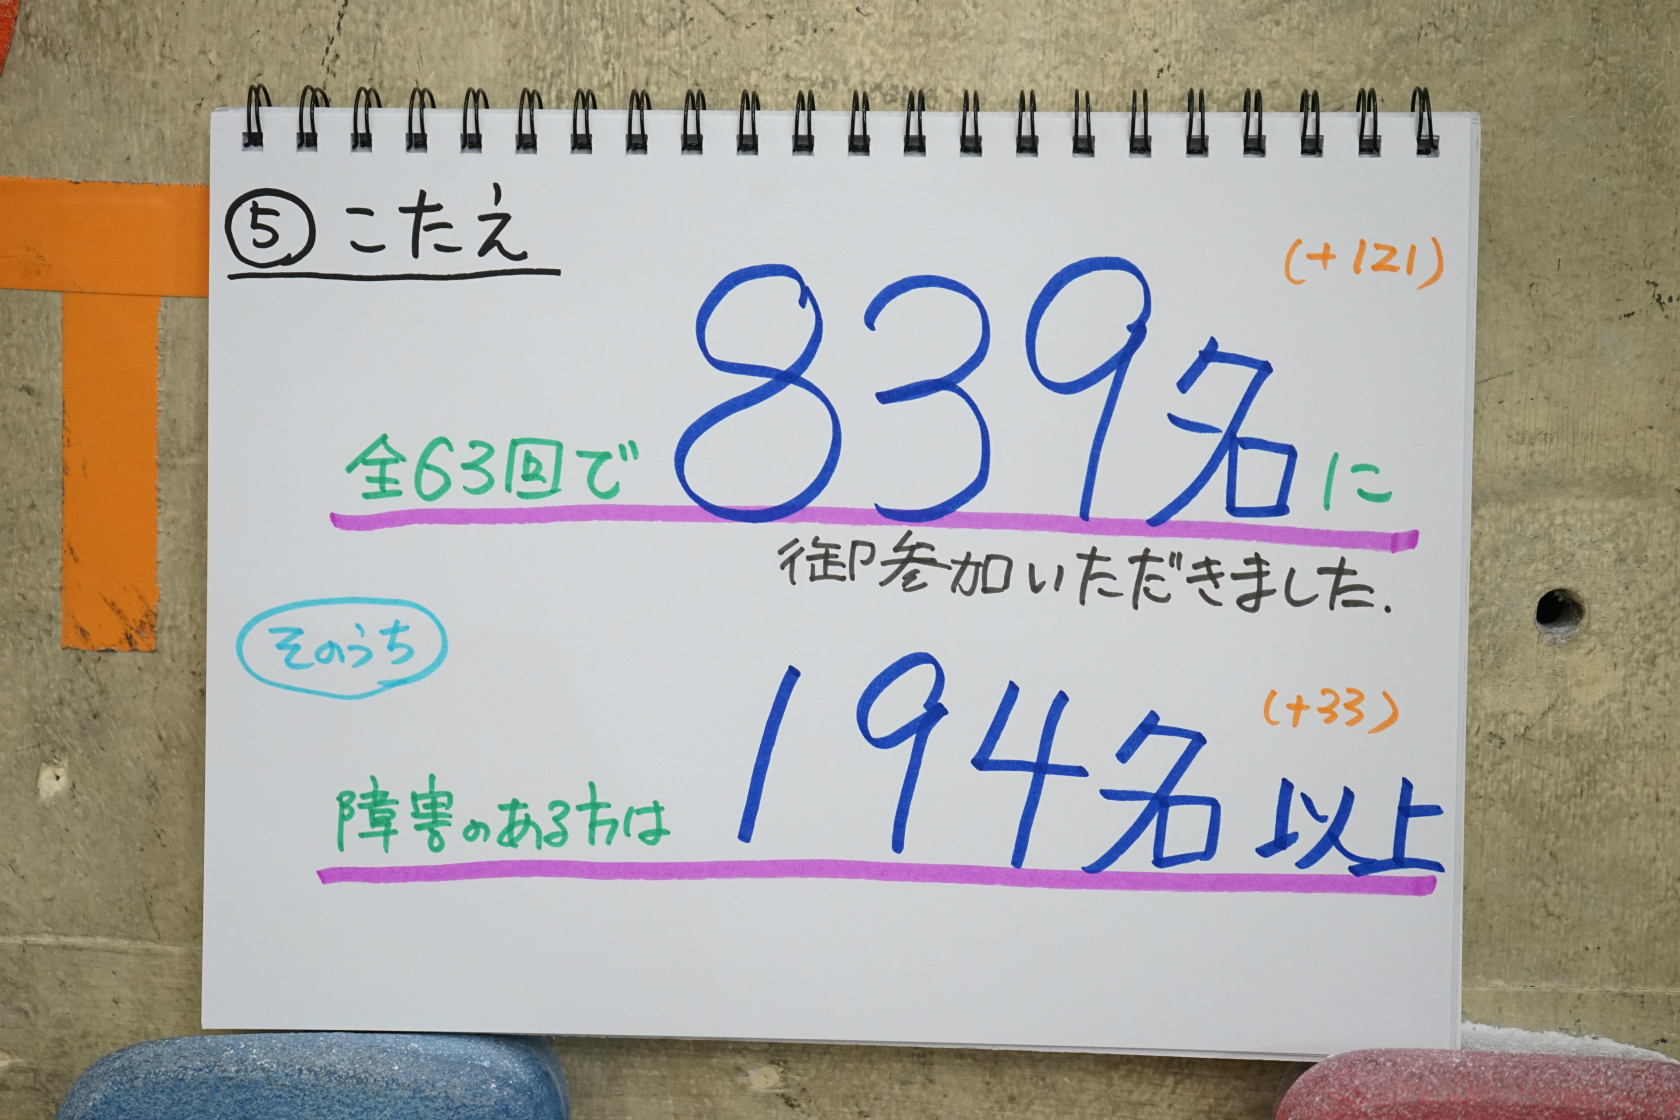 ⑤ こたえ
(+121)
全63回で 839名に
御参加いただきました.
そのうち
(+33)
障害のある方は 194名以上